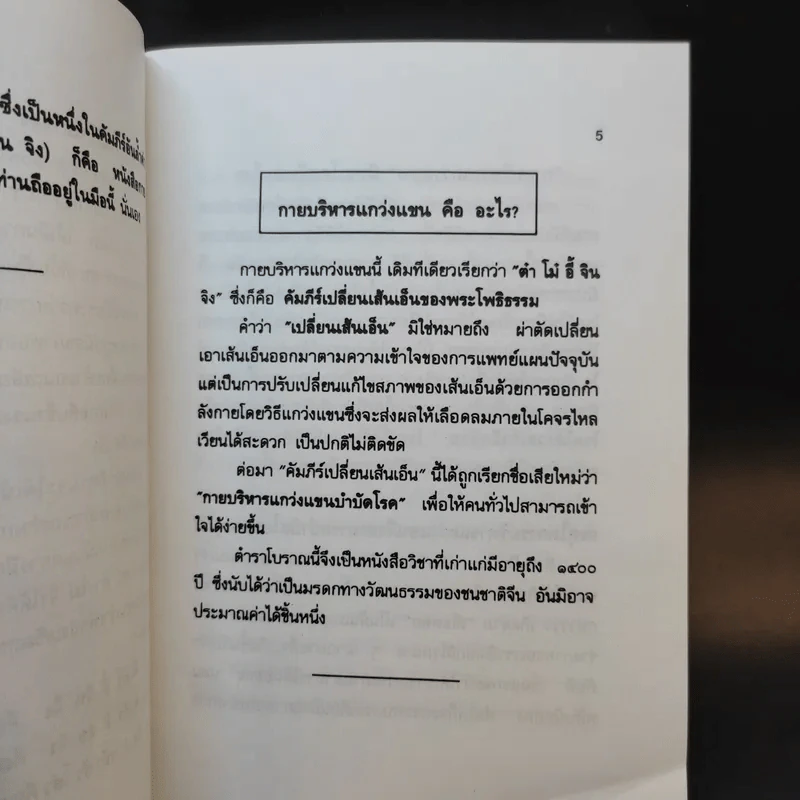 ซึ่งเป็นหนึ่งในคัมภีร์อัน
น จิง) ก็คือ หนังสือกาย
ท่านถืออยู่ในมือนี้ นั่นเอง
5
กายบริหารแกว่งแขน คือ อะไร?
กายบริหารแกว่งแขนนี้ เดิมทีเดียวเรียกว่า "ตำ โม๋ อี้ จิน
จิง" ซึ่งก็คือ คัมภีร์เปลี่ยนเส้นเอ็นของพระโพธิธรรม
คำว่า "เปลี่ยนเส้นเอ็น" มิใช่หมายถึง ผ่าตัดเปลี่ยน
เอาเส้นเอ็นออกมาตามความเข้าใจของการแพทย์แผนปัจจุบัน
แต่เป็นการปรับเปลี่ยนแก้ไขสภาพของเส้นเอ็นด้วยการออกกำ
ลังกายโดยวิธีแกว่งแขนซึ่งจะส่งผลให้เลือดลมภายในโคจรไหล
เวียนได้สะดวก เป็นปกติไม่ติดขัด
ต่อมา "คัมภีร์เปลี่ยนเส้นเอ็น" นี้ได้ถูกเรียกชื่อเสียใหม่ว่า
"กายบริหารแกว่งแขนบำบัดโรค" เพื่อให้คนทั่วไปสามารถเข้า
ใจได้ง่ายขึ้น
ตำราโบราณนี้จึงเป็นหนังสือวิชาที่เก่าแก่มีอายุถึง ๑๔๐๐
ปี ซึ่งนับได้ว่าเป็นมรดกทางวัฒนธรรมของชนชาติจีน อันมิอาจ
ประมาณค่าได้ชิ้นหนึ่ง